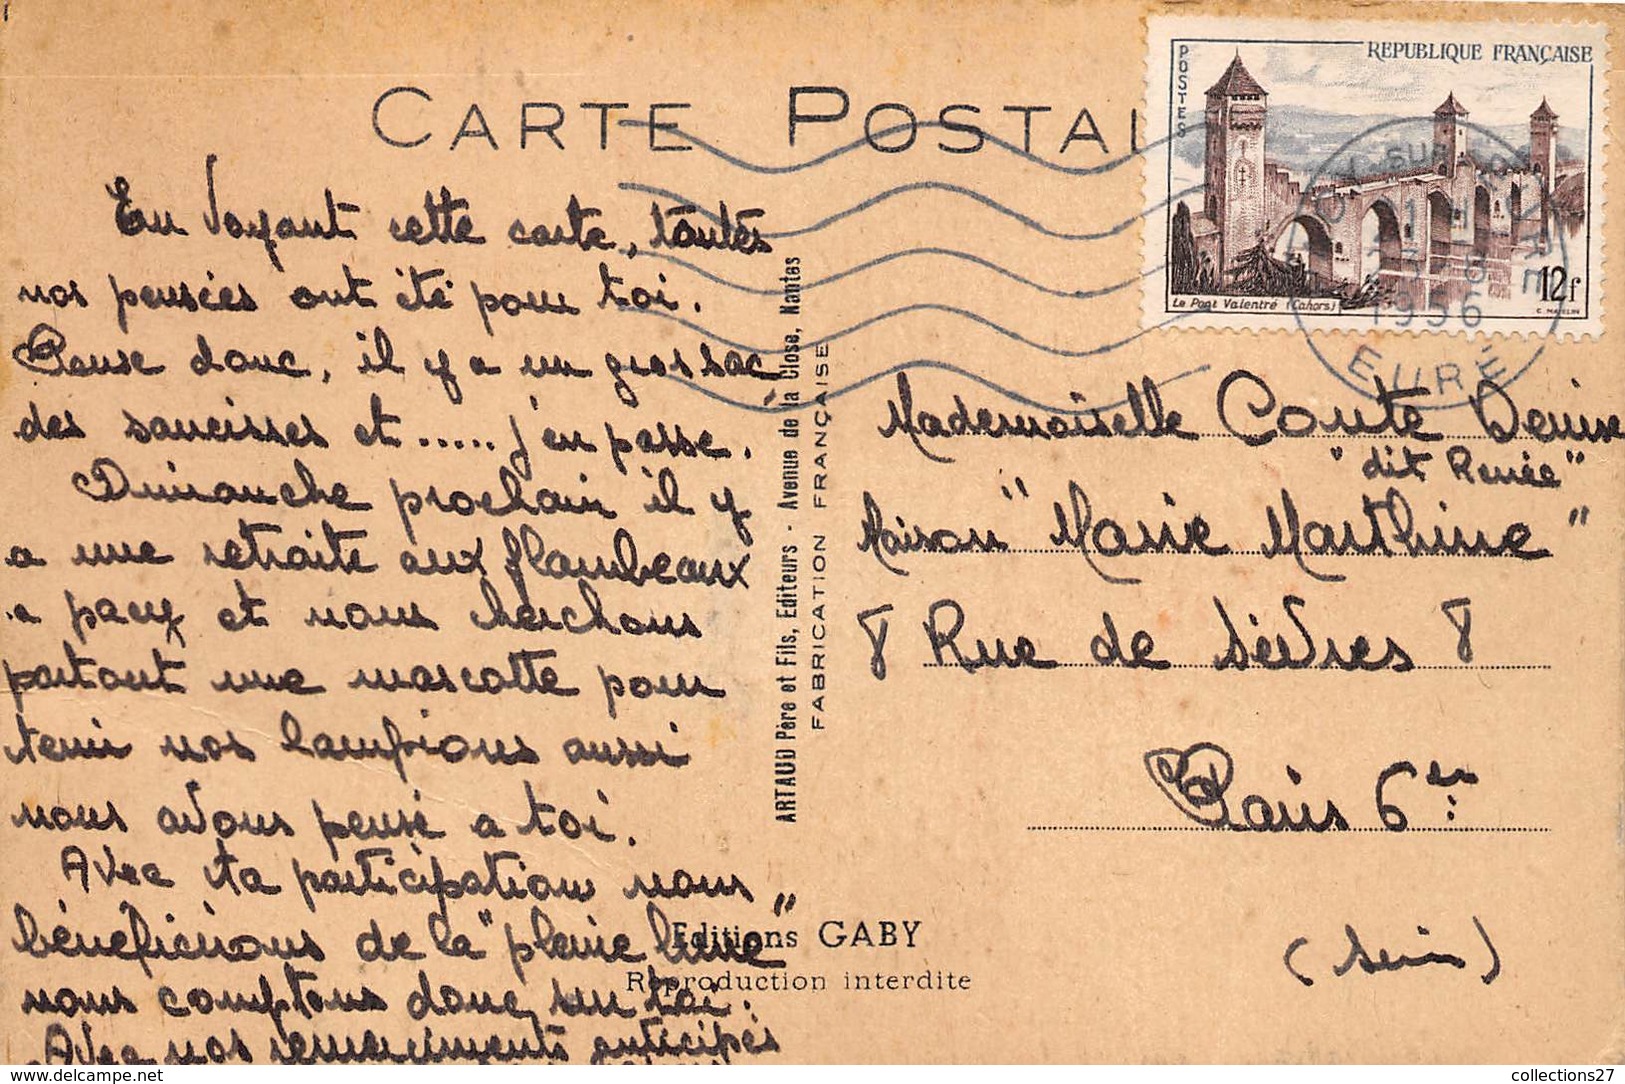 CARTE POSTAL
POSTES
REPUBLIQUE FRANÇAISE
Le Pont Valentré (Cahors)
12f
SUR
EURE
1956
EURE
En Voyant cette carte, toutes
nos pensées ont été pour toi.
Pense donc, il y a un gros sac
des saucisses et ..... j'en passe.
Dimanche prochain il y
a une retraite aux flambeaux
a pacy et nous cherchons
partout une mascotte pour
tenir nos lampions aussi
nous avons pensé a toi.
Avec ta participation nous
bénéficirions de la "pleine lune"
nous comptons donc sur toi.
Avec nos remerciments anticipés
ARTAUD Père et Fils, Editeurs - Avenue de la Close, Nantes
FABRICATION FRANÇAISE
Mademoiselle Conte Denise
"dit Renée"
Maison "Marie Marthine"
8 Rue de Sèvres 8
Paris 6em
(Seine)
Editions GABY
Reproduction interdite
https://www.delcampe.net
collections27